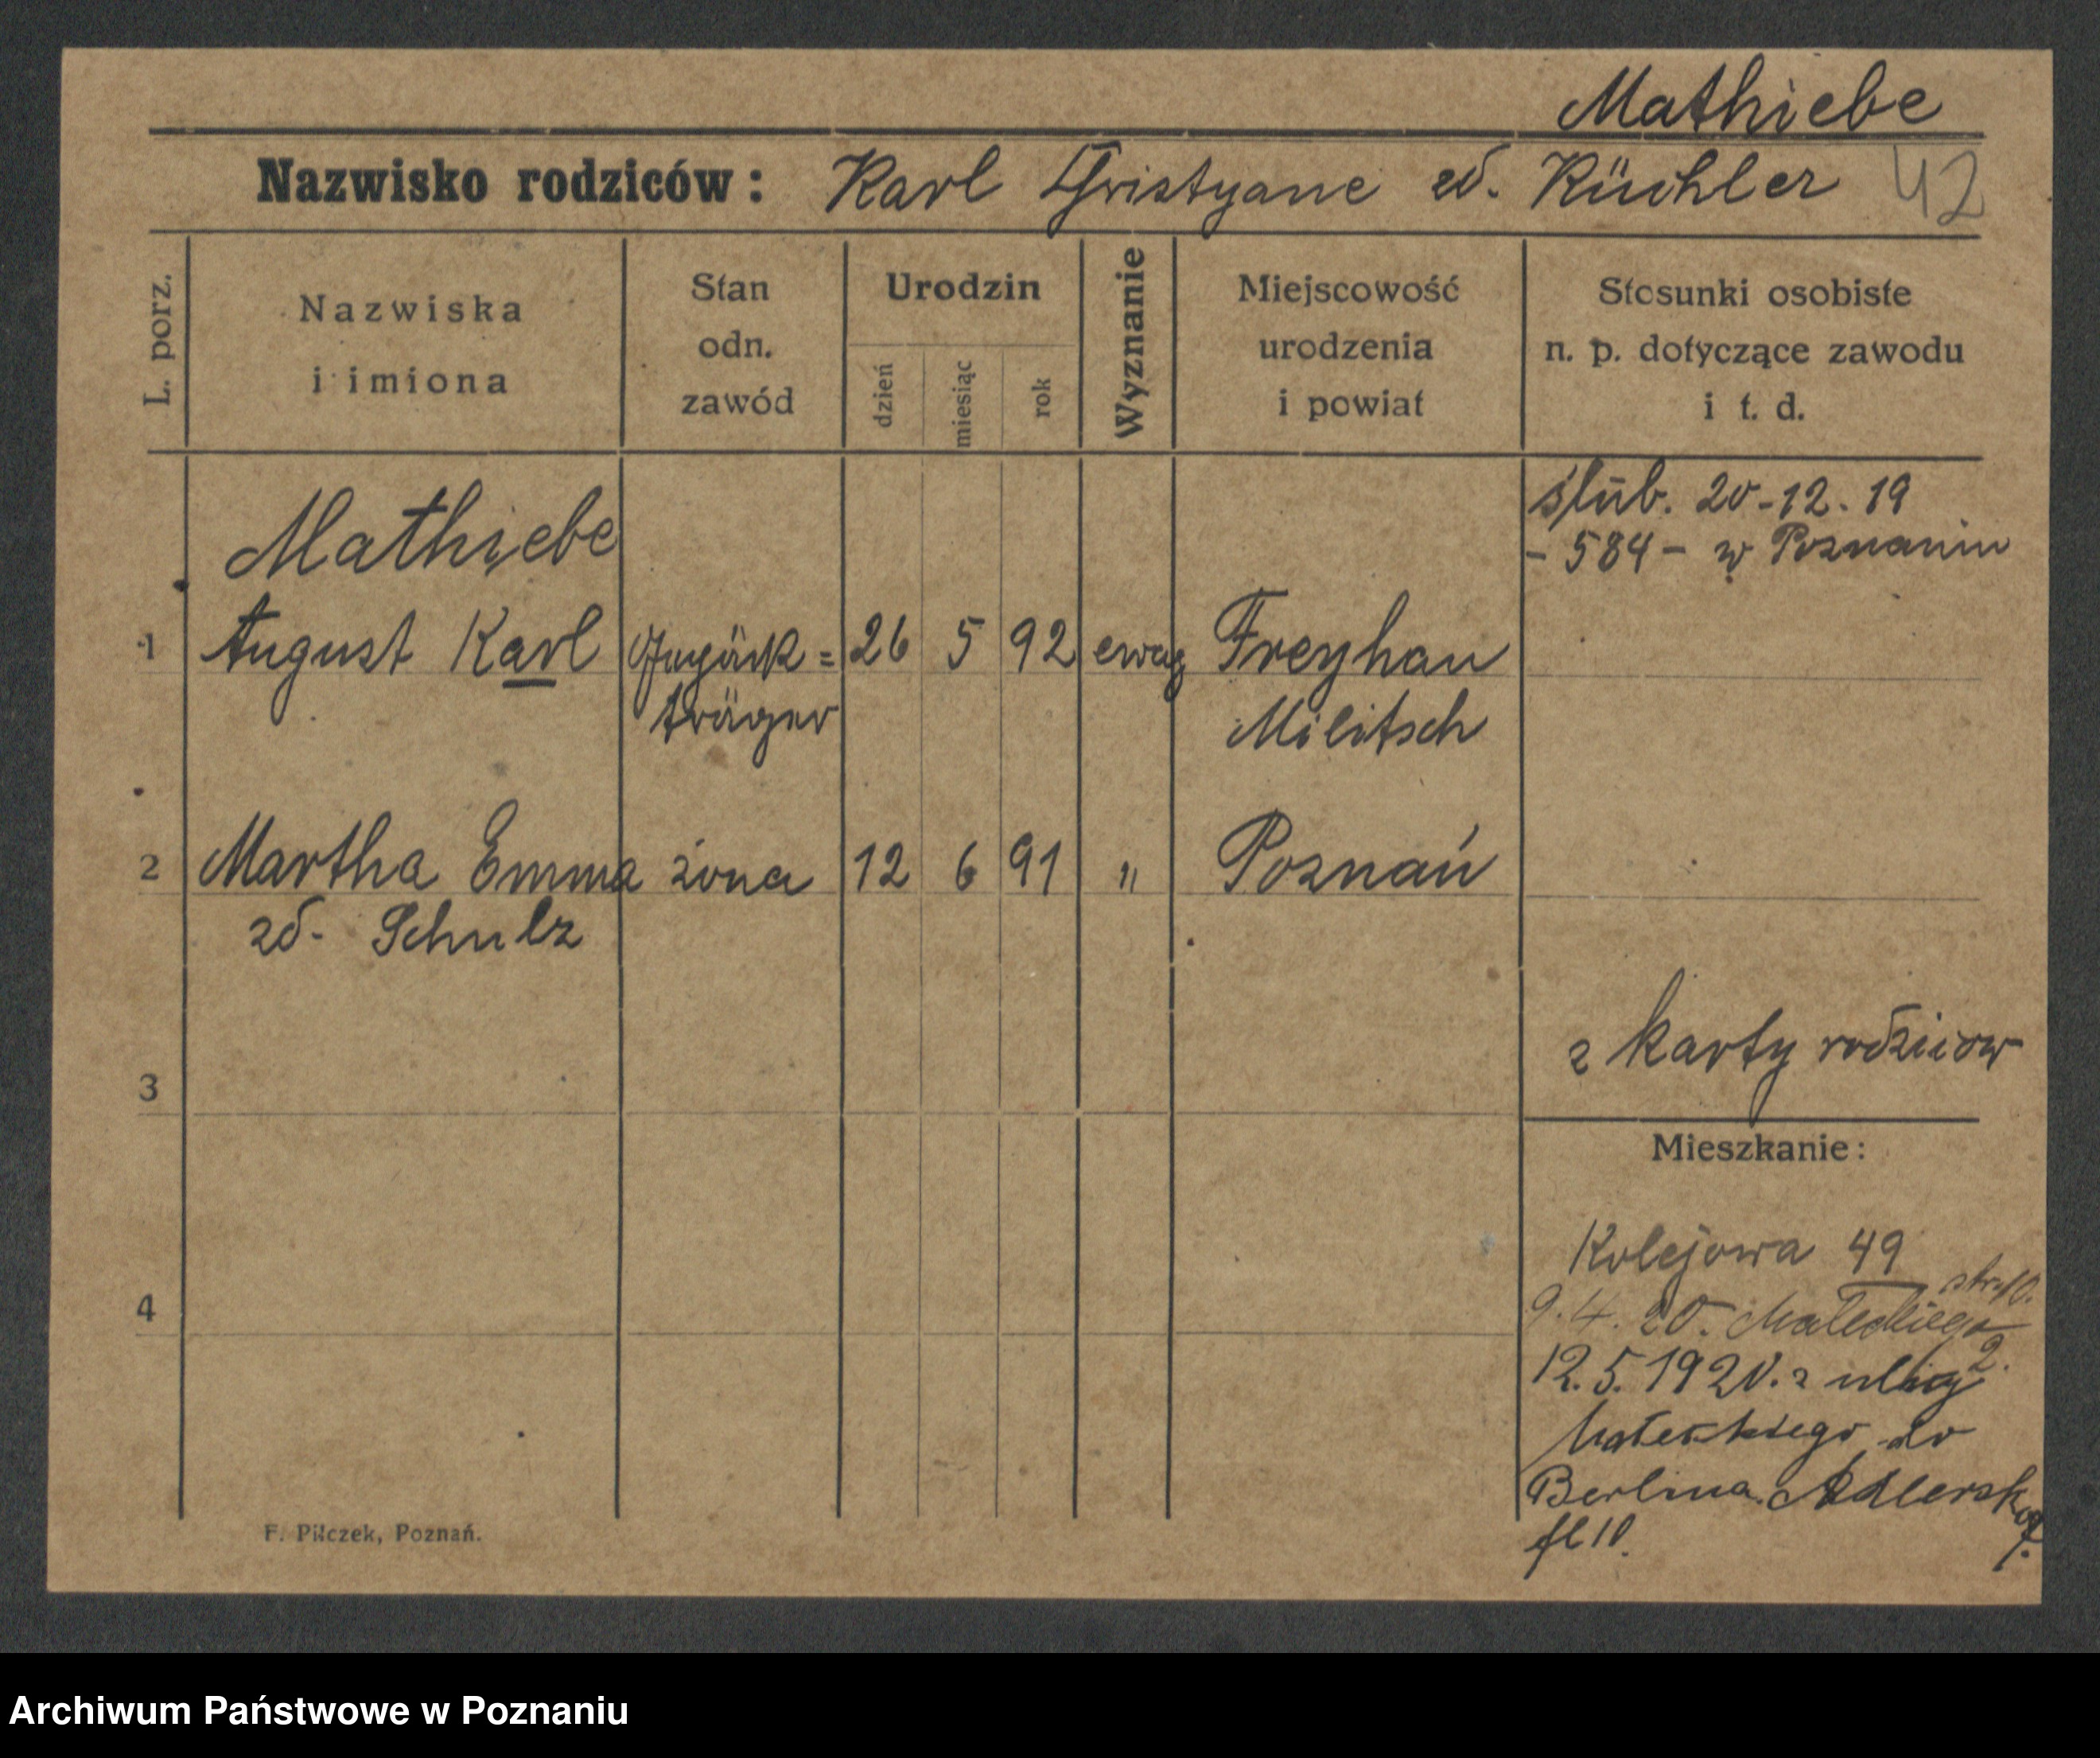 Mathiebe
Nazwisko rodziców: Karl Christyane zd. Küchler 42
L. porz.
Nazwiska i imiona
Stan odn. zawód
Urodzin
dzień miesiąc rok
Wyznanie
Miejscowość urodzenia i powiat
Stosunki osobiste n. p. dotyczące zawodu i t. d.
ślub. 20-12-19
- 584 - w Poznaniu
Mathiebe
1 August Karl Gepäck= 26 5 92 ewag Freyhan
träger Militsch
2 Martha Emma żona 12 6 91 " Poznań
zd. Schulz
z karty rodziców
3
Mieszkanie:
Kolejowa 49
9.4.20. Małeckiego
2.
4
12.5.1920. z ulicy
Małeckiego do
Berlina. Adlersk
10.
F. Pilczek, Poznań.
Archiwum Państwowe w Poznaniu